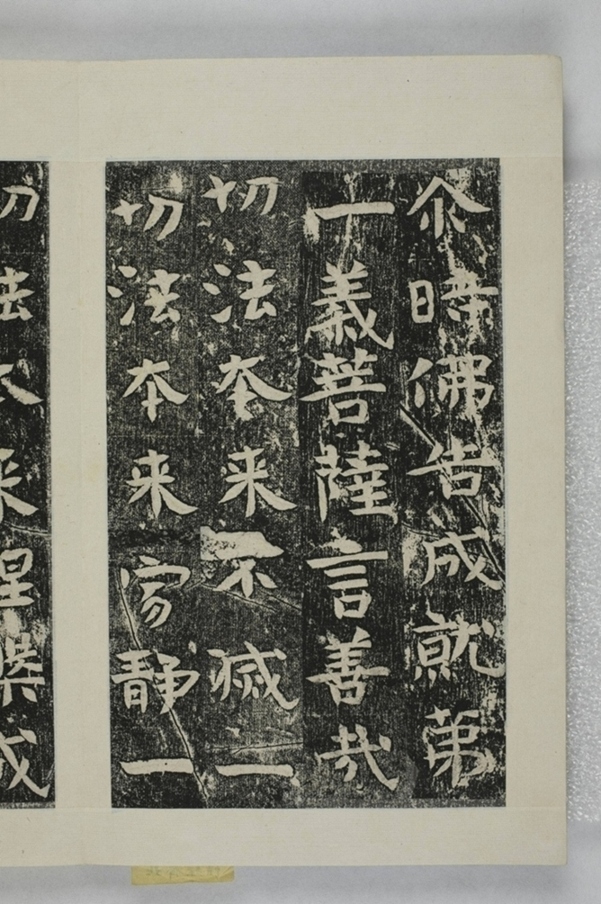 尒時佛告成就苐
一義菩薩言善哉
切法夲来不滅一
切法本来寂静一
切法本来涅槃成